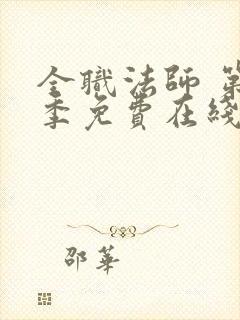 全職法師 第
季免費在綫
邵華